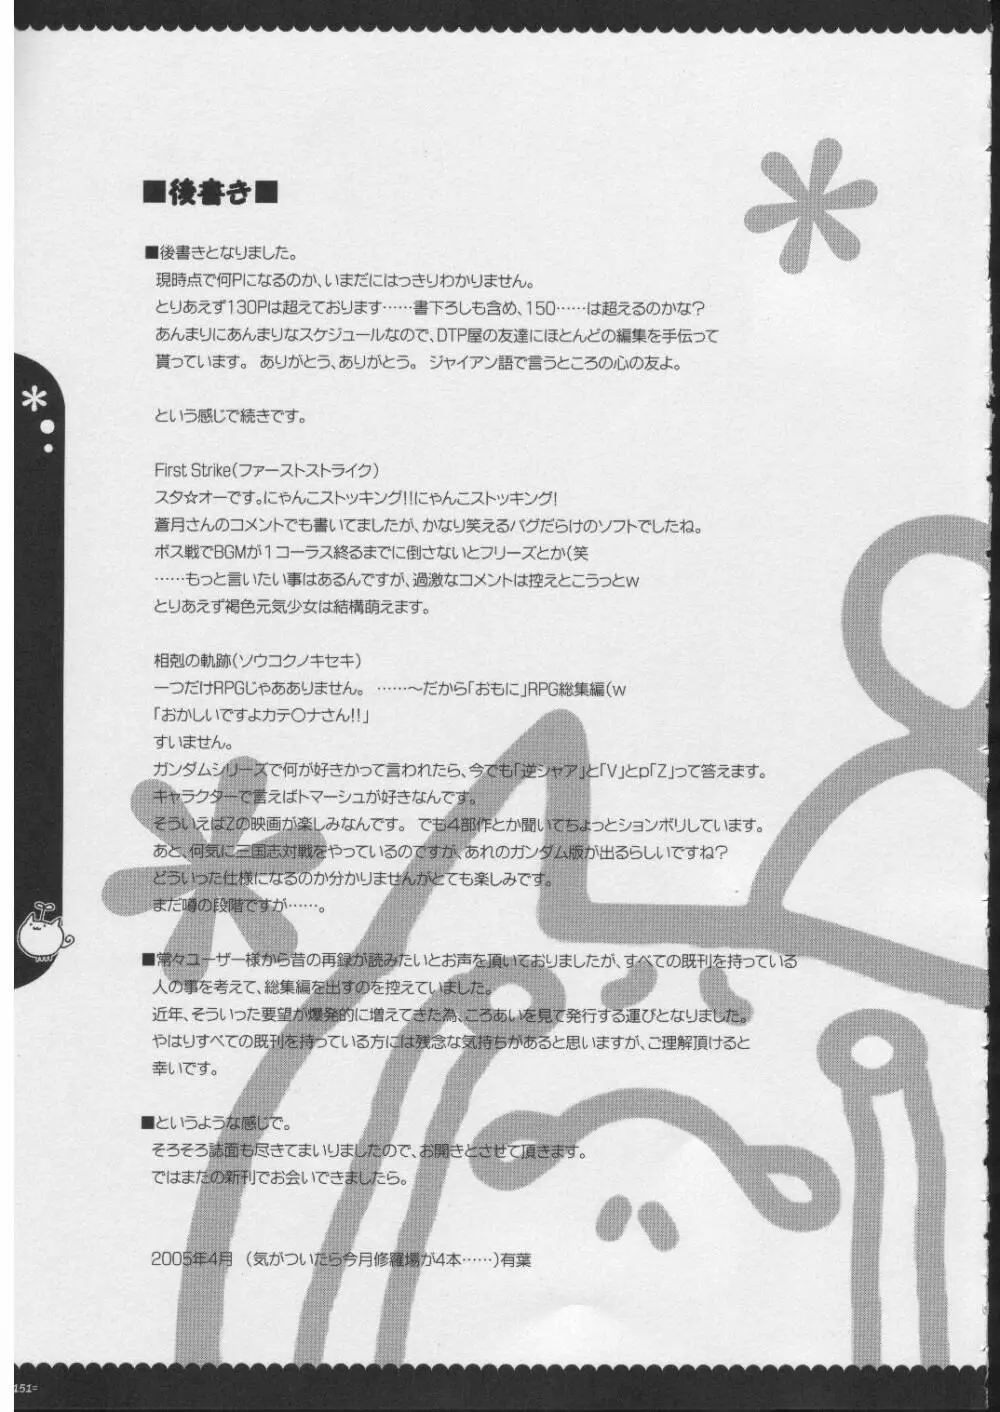 ■後書き■
■後書きとなりました。
現時点で何Pになるのか、いまだにはっきりわかりません。
とりあえず130Pは超えております……書下ろしも含め、150……は超えるのかな?
あんまりにあんまりなスケジュールなので、DTP屋の友達にほとんどの編集を手伝って
貰っています。 ありがとう、ありがとう。 ジャイアン語で言うところの心の友よ。
という感じで続きです。
First Strike(ファーストストライク)
スタ☆オーです。にゃんこストッキング!!にゃんこストッキング!
蒼月さんのコメントでも書いてましたが、かなり笑えるバグだらけのソフトでしたね。
ボス戦でBGMが1コーラス終るまでに倒さないとフリーズとか(笑
……もっと言いたい事はあるんですが、過激なコメントは控えとこうっとw
とりあえず褐色元気少女は結構萌えます。
相剋の軌跡(ソウコクノキセキ)
一つだけRPGじゃああありません。 ……~だから「おもに」RPG総集編(w
「おかしいですよカテ○ナさん!!」
すいません。
ガンダムシリーズで何が好きかって言われたら、今でも「逆シャア」と「V」とp「Z」って答えます。
キャラクターで言えばトマーシュが好きなんです。
そういえばZの映画が楽しみなんです。 でも4部作とか聞いてちょっとションボリしています。
あと、何気に三国志対戦をやっているのですが、あれのガンダム版が出るらしいですね?
どういった仕様になるのか分かりませんがとても楽しみです。
まだ噂の段階ですが……。
■常々ユーザー様から昔の再録が読みたいとお声を頂いておりましたが、すべての既刊を持っている
人の事を考えて、総集編を出すのを控えていました。
近年、そういった要望が爆発的に増えてきた為、ころあいを見て発行する運びとなりました。
やはりすべての既刊を持っている方には残念な気持ちがあると思いますが、ご理解頂けると
幸いです。
■というような感じで。
そろそろ誌面も尽きてまいりましたので、お開きとさせて頂きます。
ではまたの新刊でお会いできましたら。
2005年4月 (気がついたら今月修羅場が4本……)有葉
151=